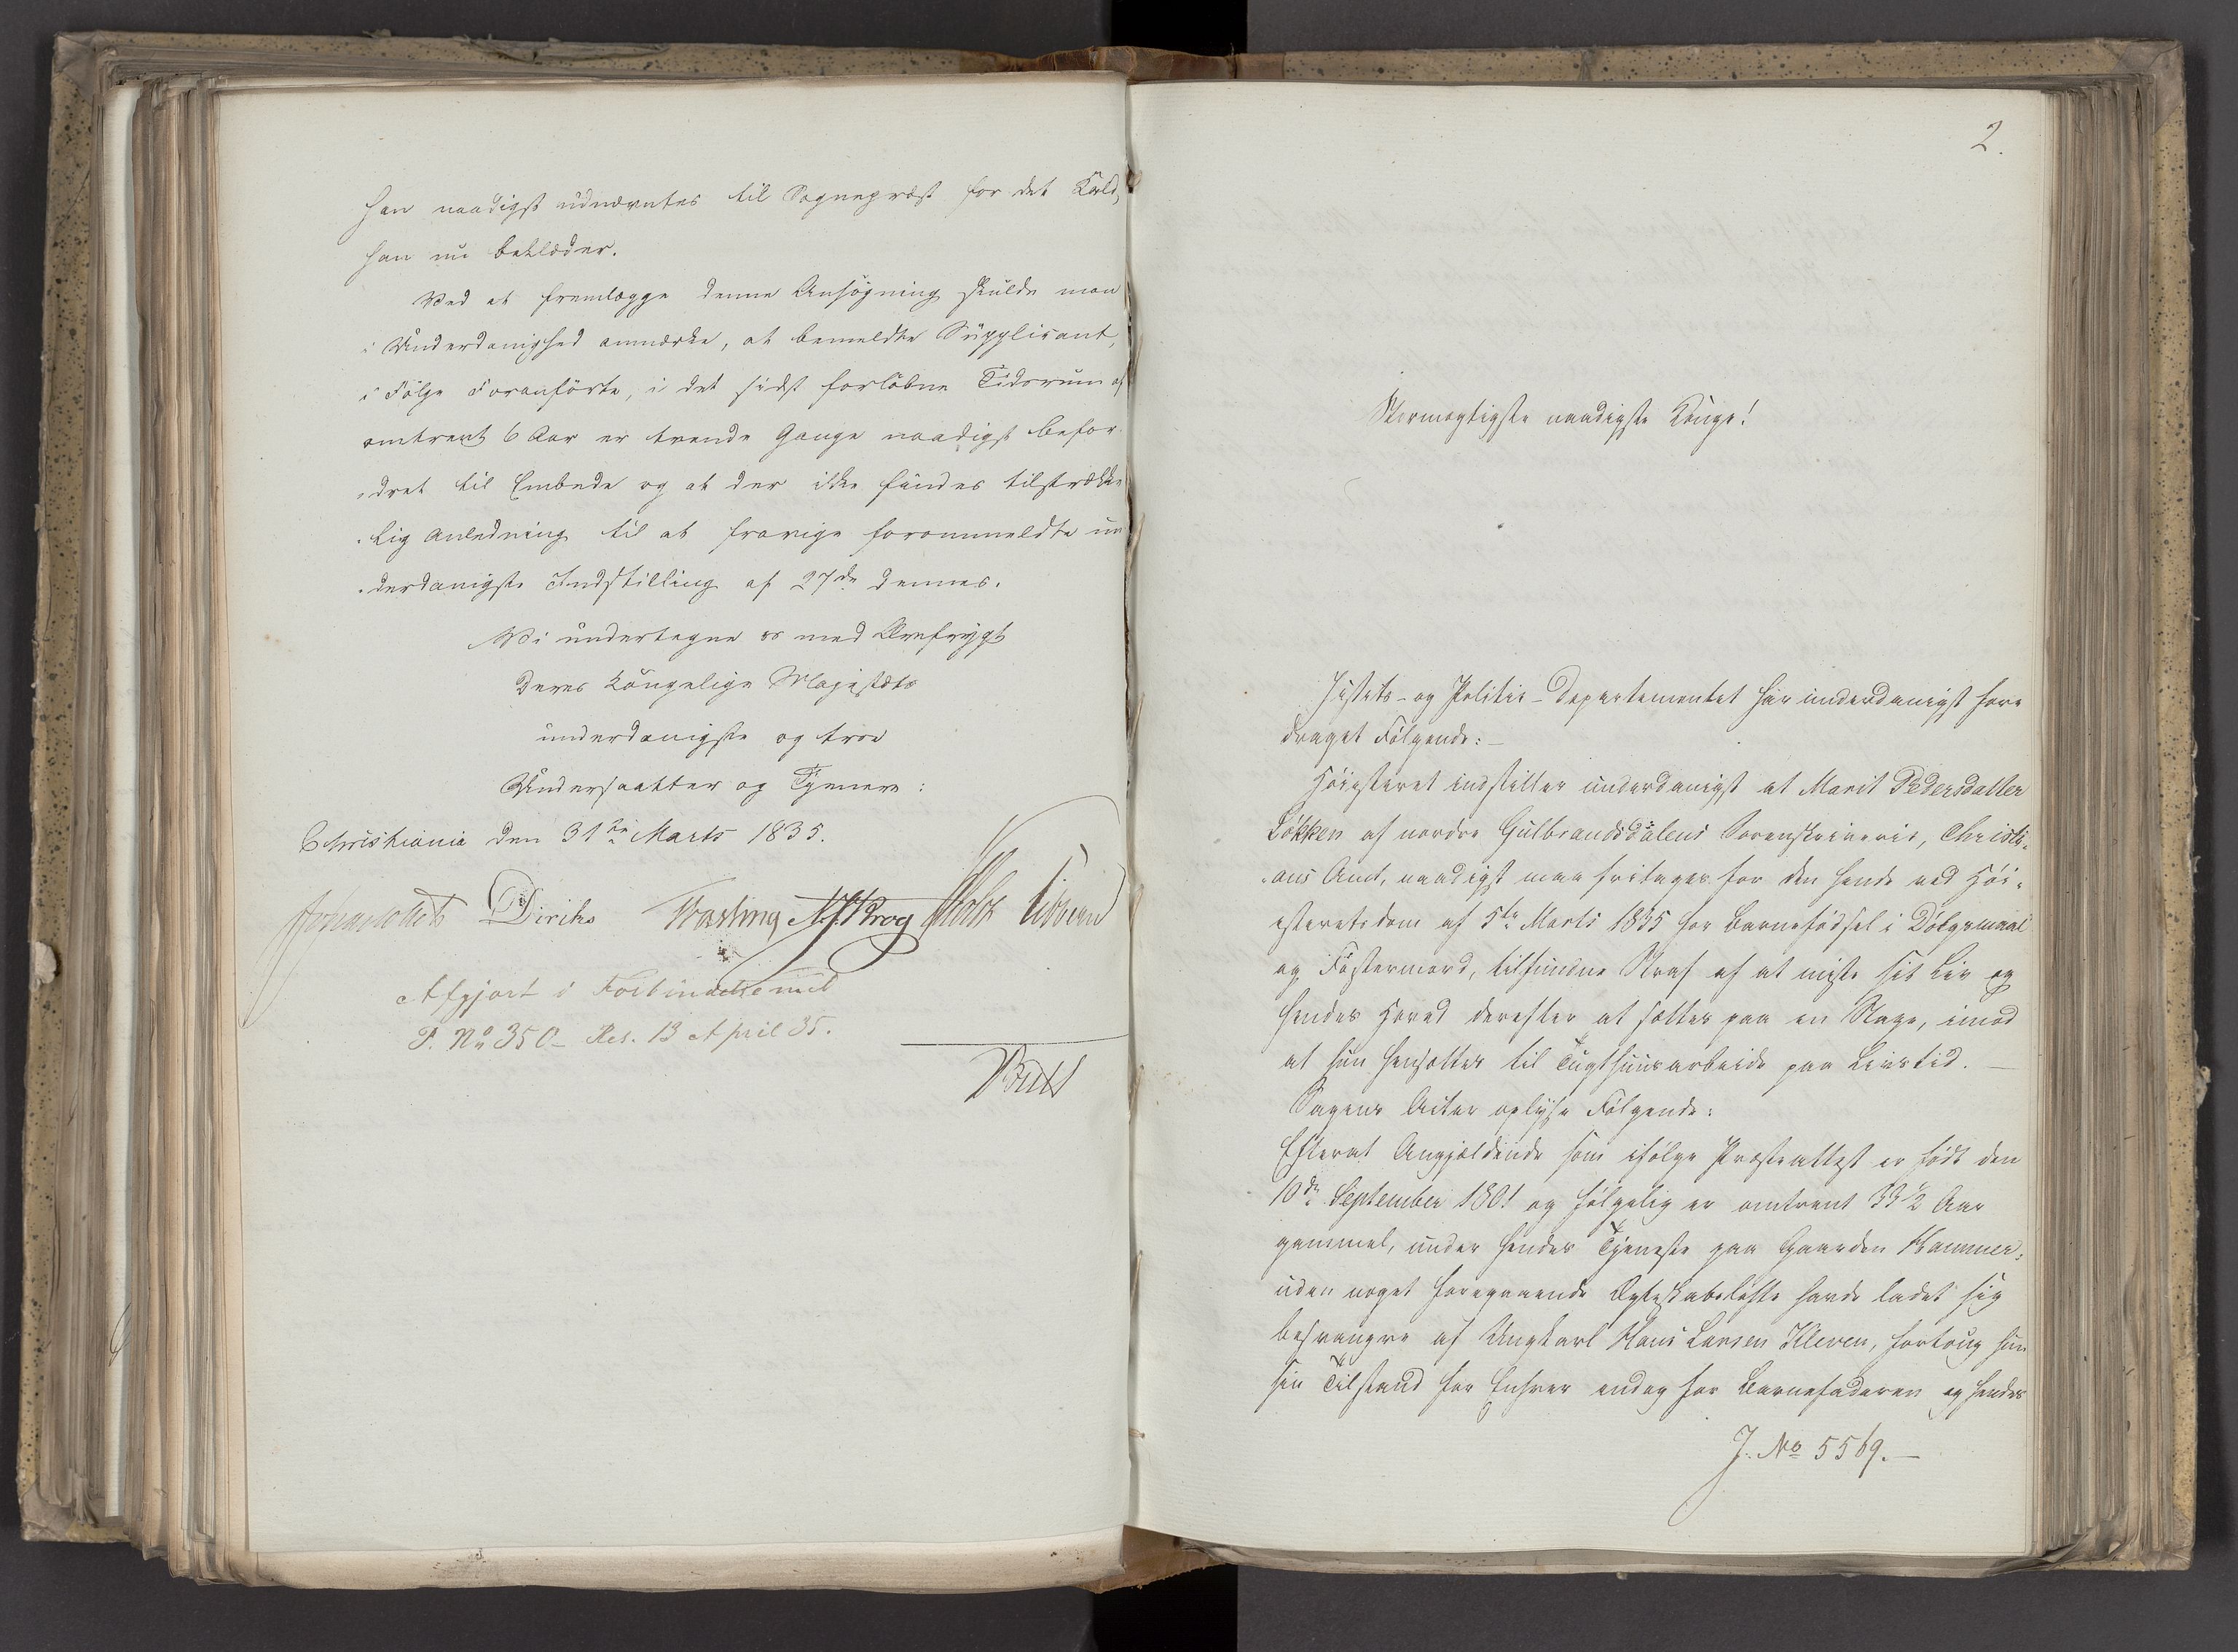 han naadigst udnævntes til Sognepræst for det Kald,
han nu beklæder.
Ved at fremlægge denne Ansøgning skulde man
i Underdanighed anmærke, at bemeldte Supplicant,
i Følge Foranførte, i det sidst forløbne Tidsrum af
omtrent 6 Aar er trende Gange naadigst befor-
dret til Embede og at der ikke findes tilstrække-
lig Anledning til at fravige forommeldte un-
derdanigste Indstilling af 27de dennes.
Vi undertegne os med Ærefrygt
Deres Kongelige Majestæts
underdanigste og troe
Undersaatter og Tjenere:
Christiania den 31te Marts 1835.
Jonas Collett Diriks Fasting N. J. Krog Holst Vibe
Afgjort i Forbindelse med
P. No 350 - Res. 13 April 35.
2.
Stormægtigste naadigste Konge!
Justits- og Politie-Departementet har underdanigst fore
draget Følgende:-
Høiesteret indstiller underdanigst at Marit Pedersdatter
Løkken af nordre Gulbrandsdalens Sorenskriverie, Christi-
ans Amt, naadigst maa fritages for den hende ved Høi-
esteretsdom af 5te Marts 1835 for Barnefødsel i Dølgsmaal
og Fostermord, tilfundne Straf af at miste sit Liv og
hendes Hoved derefter at sættes paa en Stage, imod
at hun hensættes til Tugthuusarbeide paa Livstid. -
Sagens Acter oplyse Følgende:
Efterat Angjældende som ifølge Præsteattest er født den
10de September 1801 og følgelig er omtrent 33½ Aar
gammel, under hendes Tjeneste paa Gaarden Hammer,
uden noget foregaaende Ægteskabsløfte havde ladet sig
besvangre af Ungkarl Hans Larsen Kleven, fortoug hun
sin Tilstand for Enhver endog for Barnefaderen og hendes
J. No 5569.-